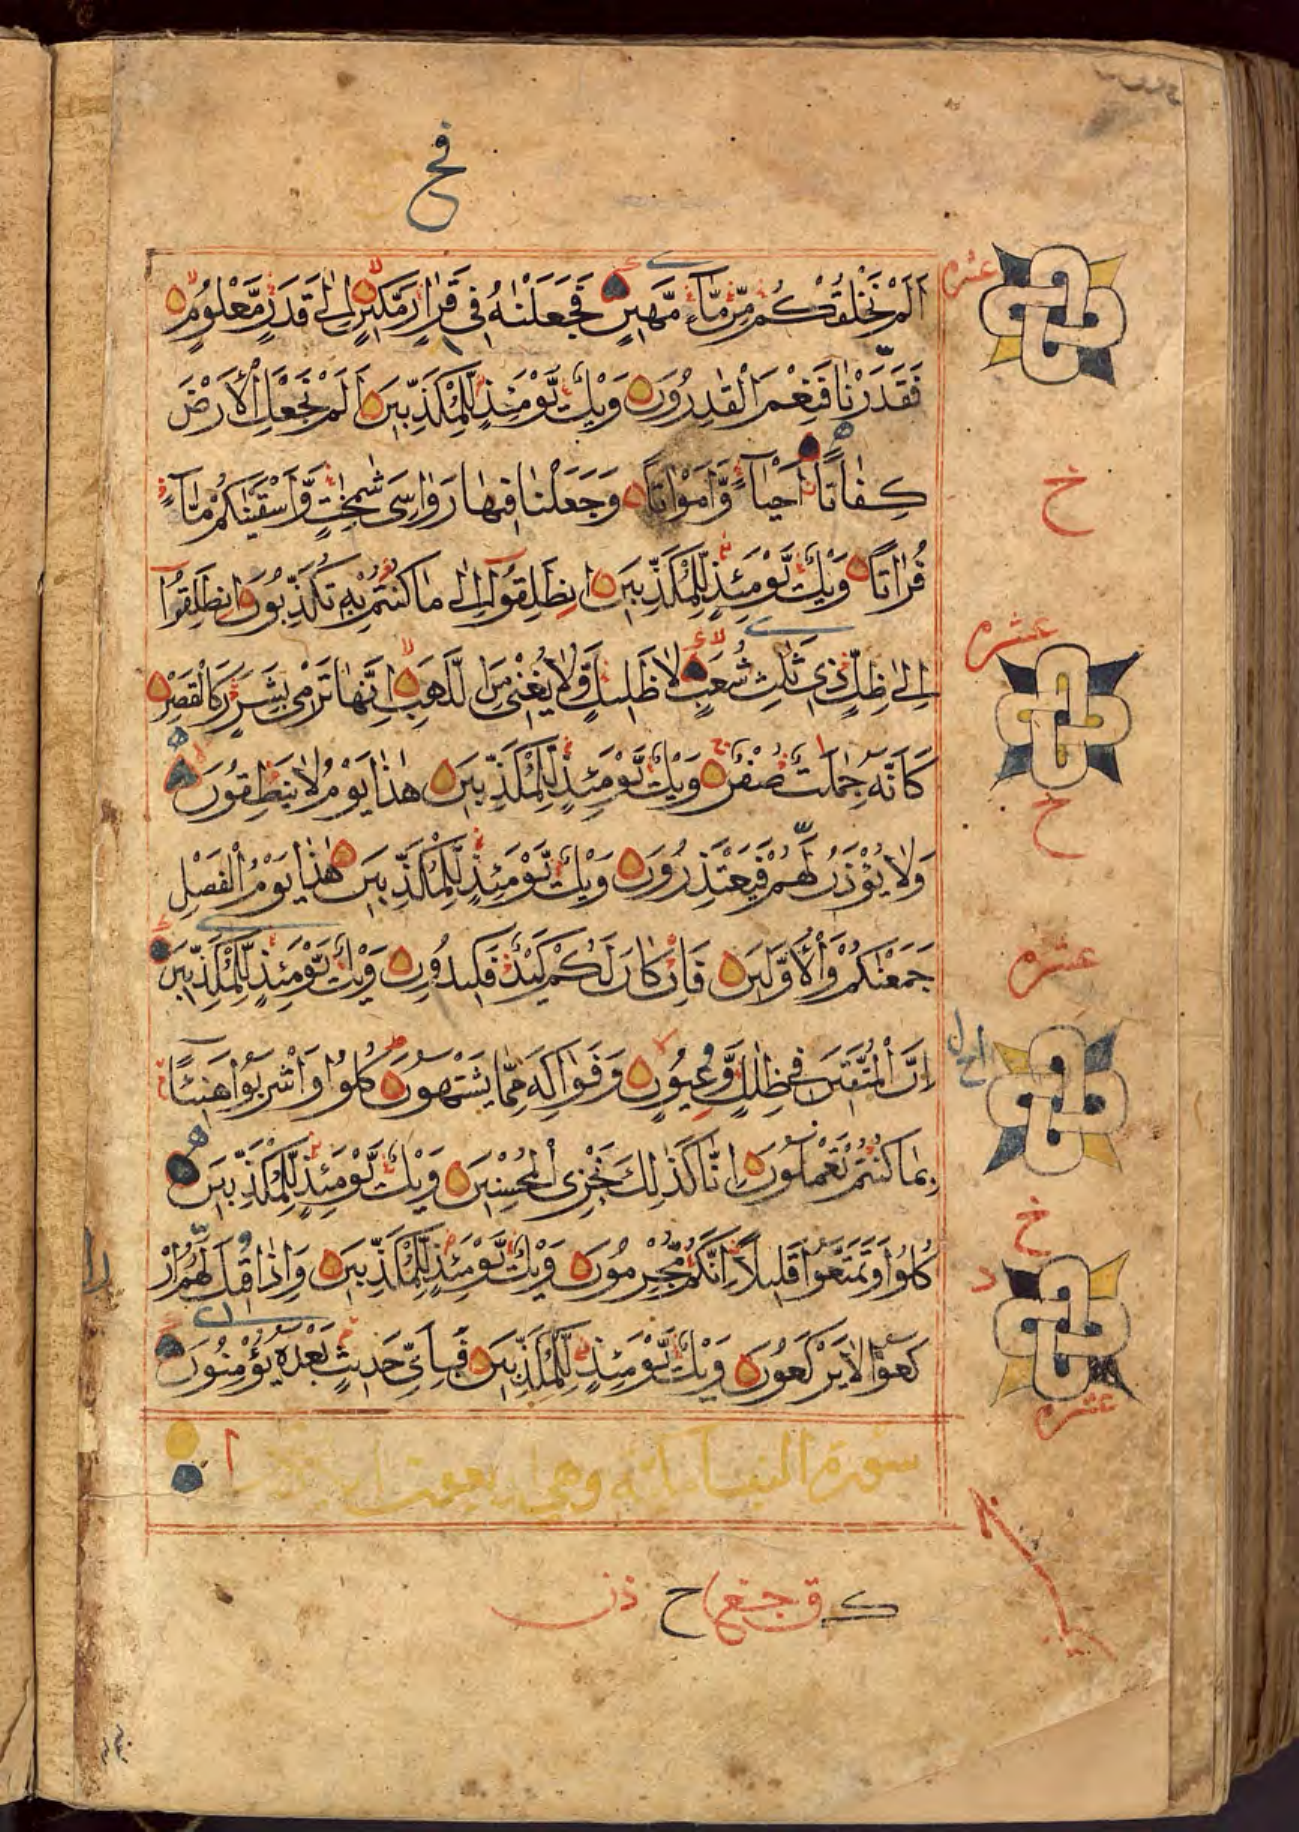 فح
اَلَمْ نَخْلُقْكُمْ مِّنْ مَّآءٍ مَّهِينٍ فَجَعَلْنٰهُ فِى قَرَارٍ مَّكِينٍ اِلٰى قَدَرٍ مَّعْلُومٍ
عشره
فَقَدَرْنَا فَنِعْمَ الْقٰدِرُونَ وَيْلٌ يَّوْمَئِذٍ لِّلْمُكَذِّبِينَ اَلَمْ نَجْعَلِ الْاَرْضَ
كِفَاتًا اَحْيَآءً وَّاَمْوَاتًا وَجَعَلْنَا فِيهَا رَوَاسِىَ شٰمِخٰتٍ وَّاَسْقَيْنٰكُمْ مَّآءً
خ
فُرَاتًا وَيْلٌ يَّوْمَئِذٍ لِّلْمُكَذِّبِينَ انْطَلِقُوٓا اِلٰى مَا كُنْتُمْ بِهٖ تُكَذِّبُونَ انْطَلِقُوٓا
عشره
اِلٰى ظِلٍّ ذِى ثَلٰثِ شُعَبٍ لَا ظَلِيلٍ وَّلَا يُغْنِى مِنَ اللَّهَبِ اِنَّهَا تَرْمِى بِشَرَرٍ كَالْقَصْرِ
كَاَنَّهُ جِمٰلَتٌ صُفْرٌ وَيْلٌ يَّوْمَئِذٍ لِّلْمُكَذِّبِينَ هٰذَا يَوْمُ لَا يَنْطِقُونَ
خ
وَلَا يُؤْذَنُ لَهُمْ فَيَعْتَذِرُونَ وَيْلٌ يَّوْمَئِذٍ لِّلْمُكَذِّبِينَ هٰذَا يَوْمُ الْفَصْلِ
جَمَعْنٰكُمْ وَالْاَوَّلِينَ فَاِنْ كَانَ لَكُمْ كَيْدٌ فَكِيدُونِ وَيْلٌ يَّوْمَئِذٍ لِّلْمُكَذِّبِينَ
عشره
اِنَّ الْمُتَّقِينَ فِى ظِلٰلٍ وَّعُيُونٍ وَفَوَاكِهَ مِمَّا يَشْتَهُونَ كُلُوا وَاشْرَبُوا هَنِيٓئًا
بِمَا كُنْتُمْ تَعْمَلُونَ اِنَّا كَذٰلِكَ نَجْزِى الْمُحْسِنِينَ وَيْلٌ يَّوْمَئِذٍ لِّلْمُكَذِّبِينَ
خ
كُلُوا وَتَمَتَّعُوا قَلِيلًا اِنَّكُمْ مُّجْرِمُونَ وَيْلٌ يَّوْمَئِذٍ لِّلْمُكَذِّبِينَ وَاِذَا قِيلَ لَهُمُ ارْ
كَعُوا لَا يَرْكَعُونَ وَيْلٌ يَّوْمَئِذٍ لِّلْمُكَذِّبِينَ فَبِاَىِّ حَدِيثٍ بَعْدَهُ يُؤْمِنُونَ
عشره
سورة النبا مكية وهى اربعون